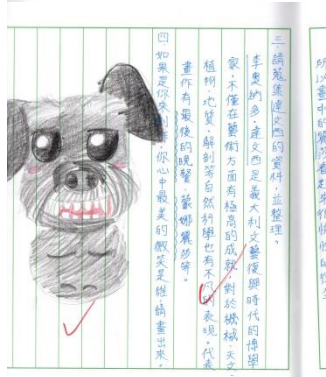 所以畫中的
三、請蒐集達文西的資料,並整理。
李奧納多.達文西是義大利文藝復興時代的博學
家,不僅在藝術方面有極高的成就,對於機械、天文、
植物、地質、解剖等自然科學也有不凡的表現。代表
畫作有最後的晚餐、蒙娜麗莎等。
四、如果是你來你心中最美的微笑是誰?請畫出來。